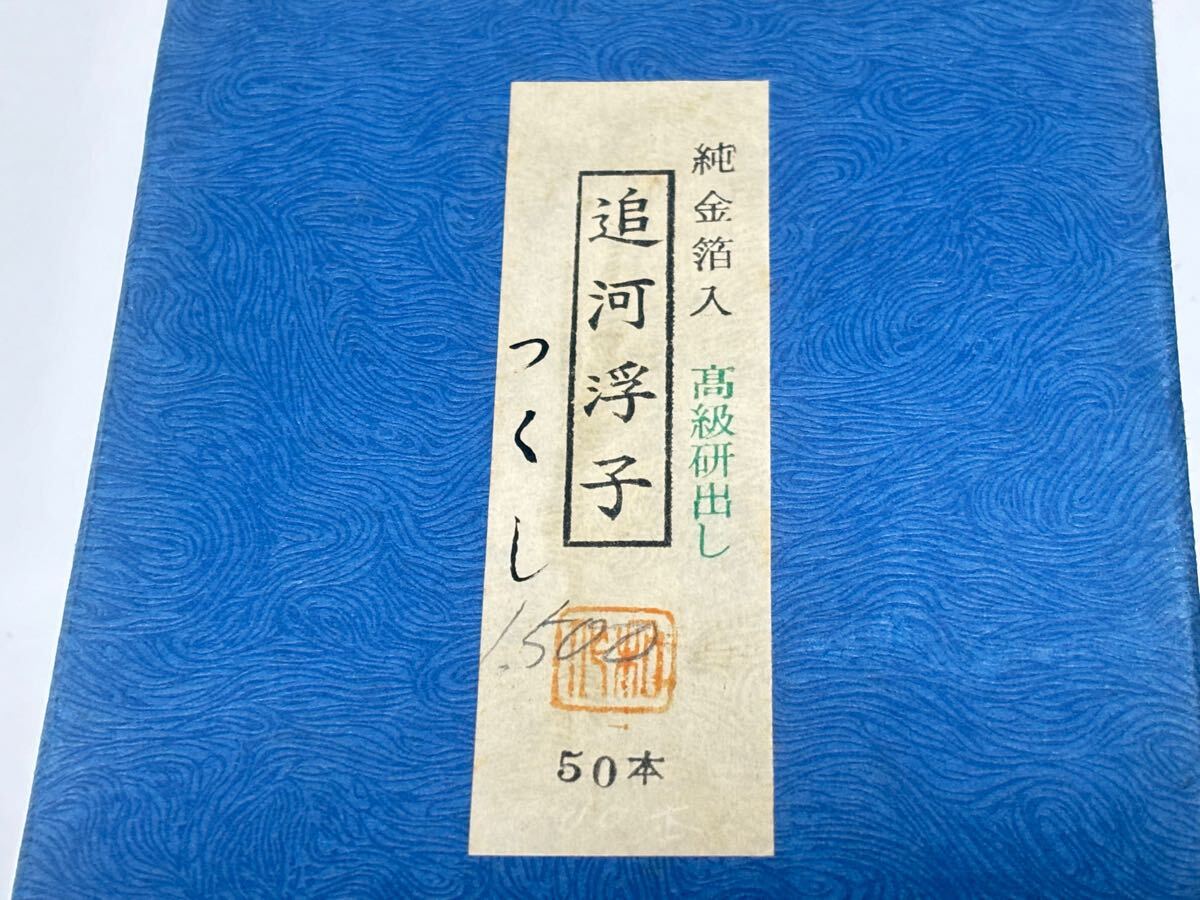 純金箔入 高級研出し
追河浮子
つくし
1.500
50本